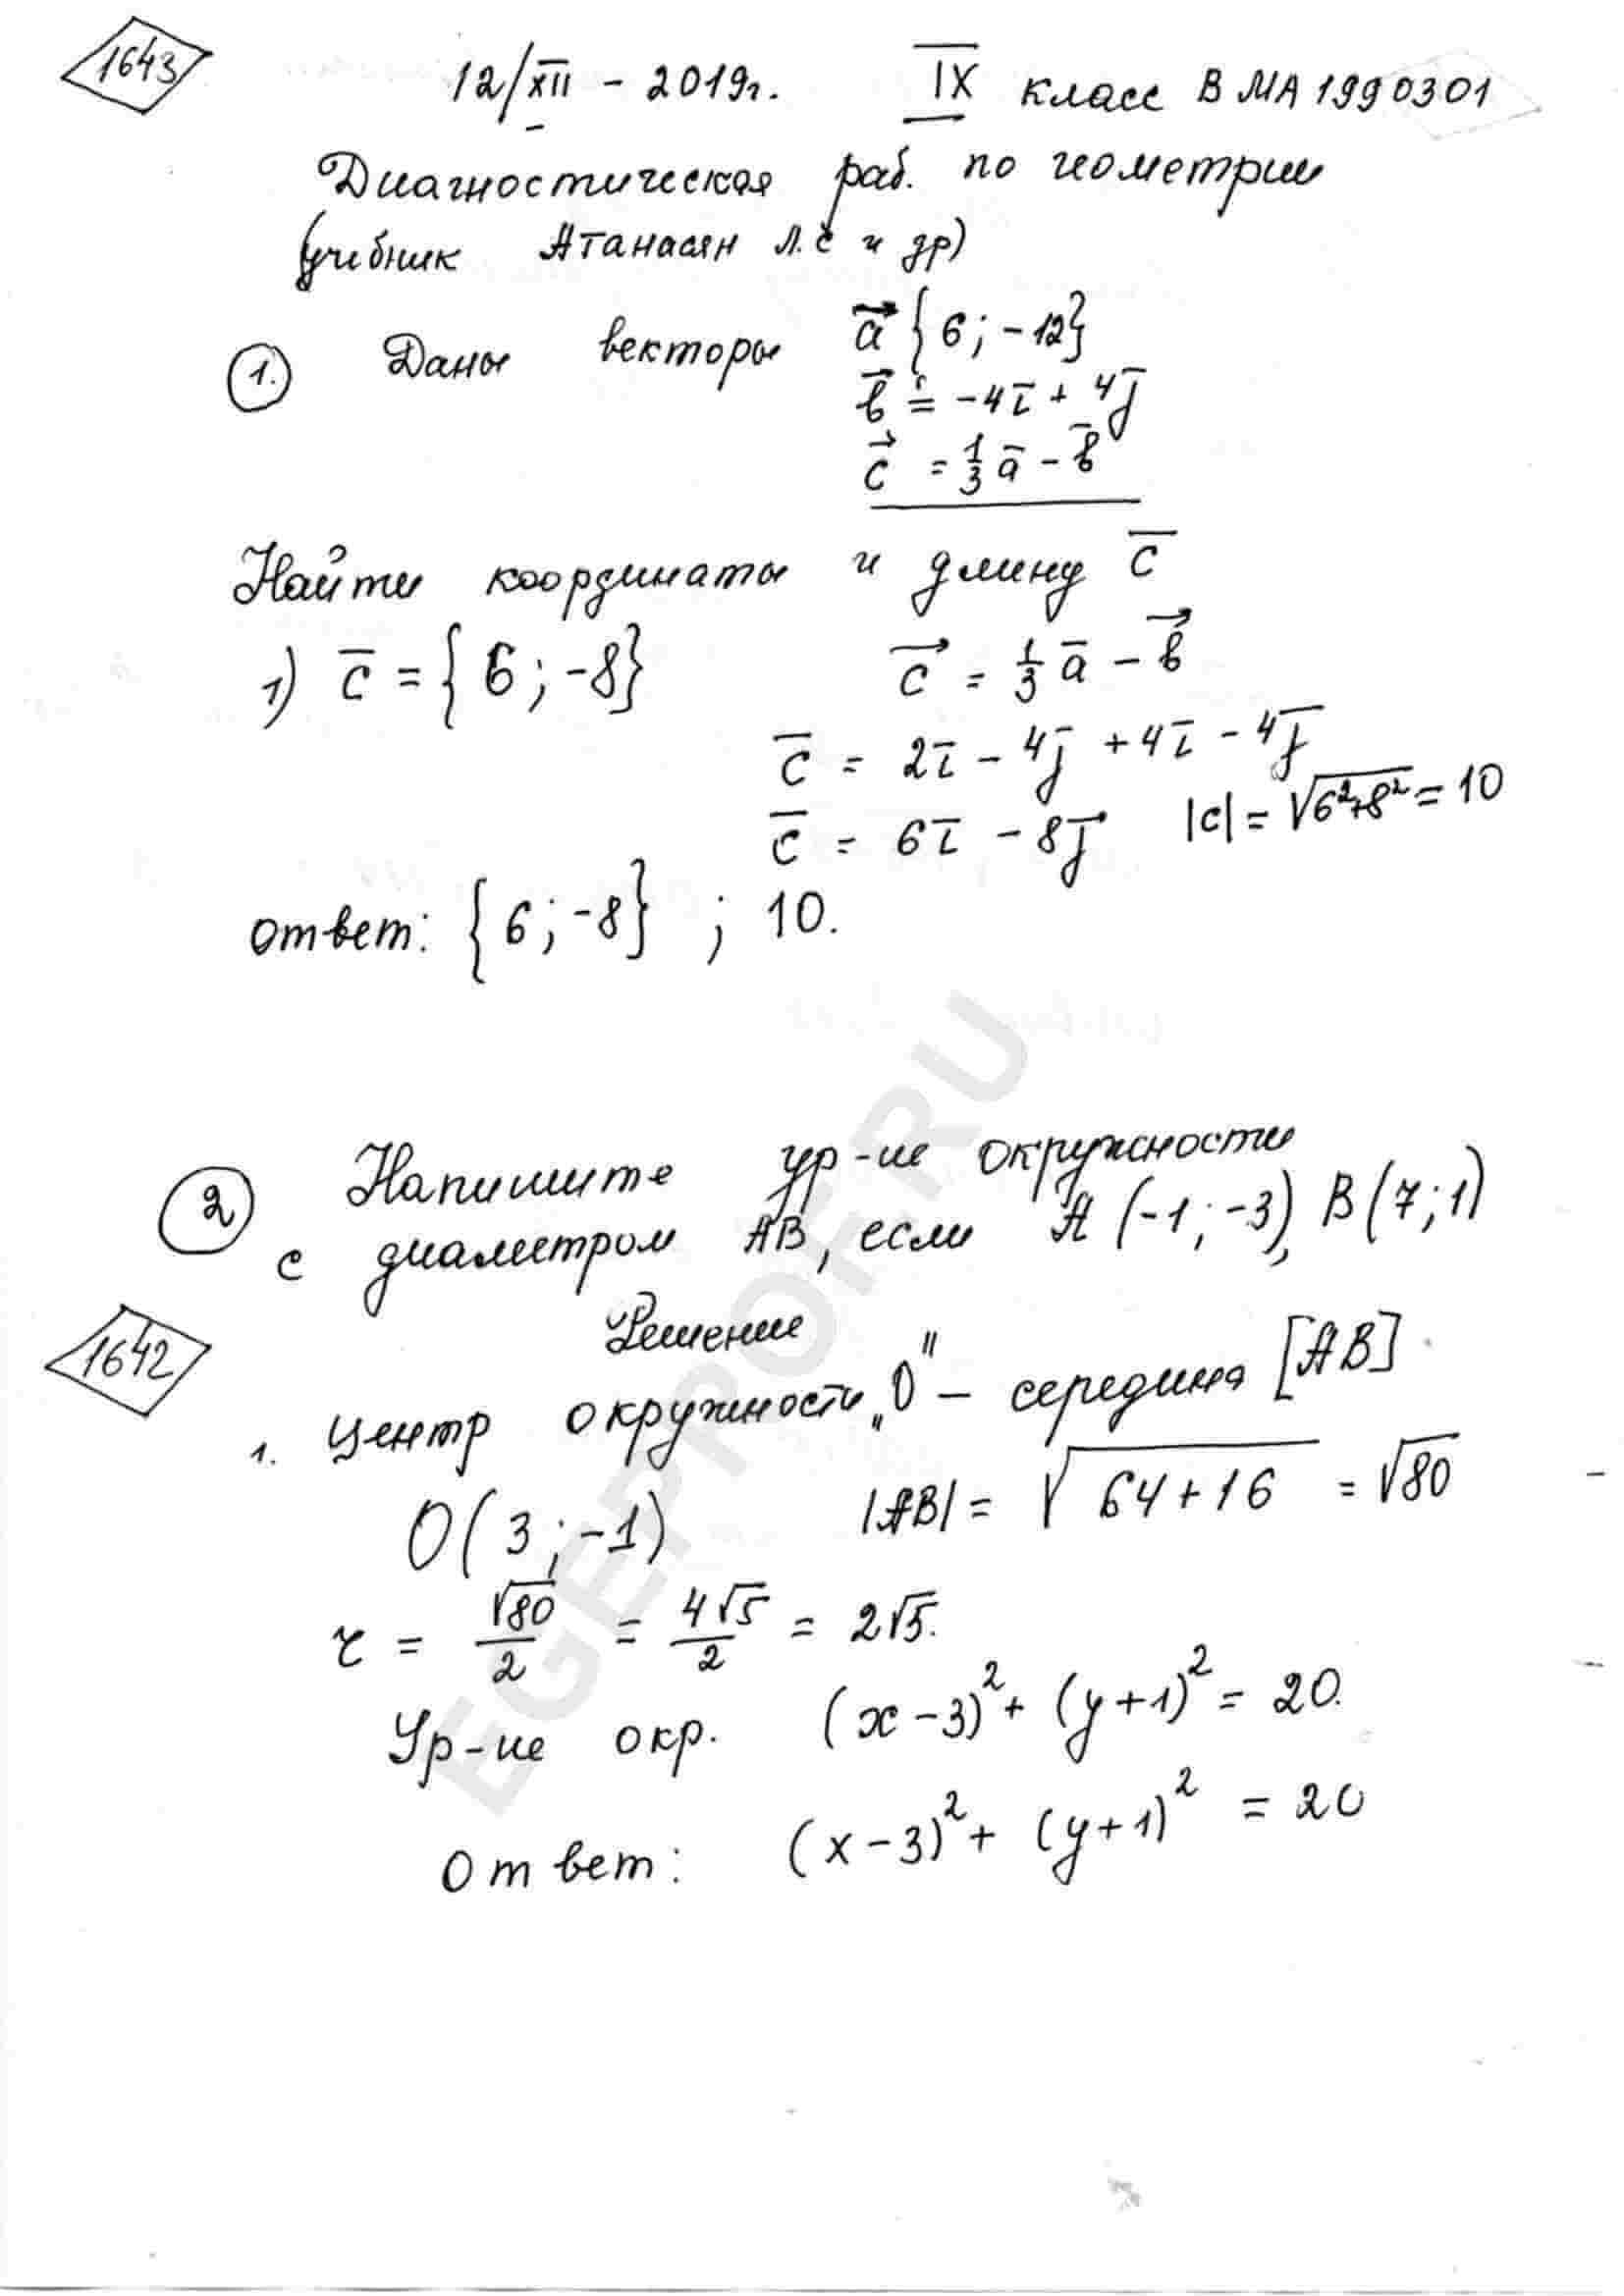 1643
12/XII - 2019г. IX класс В МА 1990301
Диагностическая раб. по геометрии
(учебник Атанасян Л.С и др)
1. Даны векторы a⃗ {6; -12}
b⃗ = -4i̅ + 4j̅
c⃗ = 1/3 a̅ - b̅
Найти координаты и длину c̅
1) c̅ = {6; -8} c⃗ = 1/3 a̅ - b⃗
c̅ = 2i̅ - 4j̅ + 4i̅ - 4j̅
c̅ = 6i̅ - 8j⃗ |c| = √(6²+8²) = 10
ответ: {6; -8} ; 10.
2 Напишите ур-ие окружности
с диаметром АВ, если А (-1; -3), В (7; 1)
1642
Решение
1. Центр окружности „О" – середина [АВ]
О(3; -1) |АВ| = √(64+16) = √80
r = √80/2 = 4√5/2 = 2√5.
Ур-ие окр. (x-3)² + (y+1)² = 20.
Ответ: (x-3)² + (y+1)² = 20
EGEPROF.RU